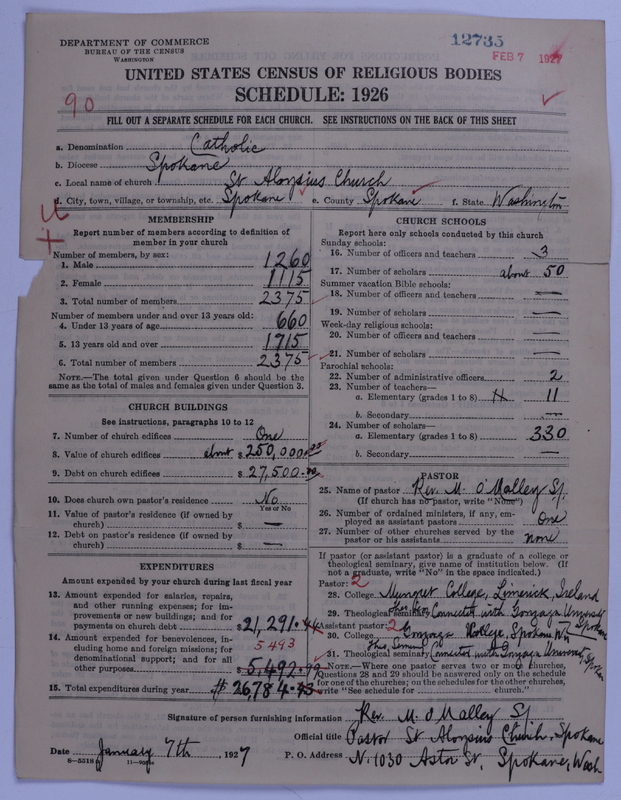 DEPARTMENT OF COMMERCE
BUREAU OF THE CENSUS
WASHINGTON
12735
FEB 7 1927
UNITED STATES CENSUS OF RELIGIOUS BODIES
SCHEDULE: 1926
90
FILL OUT A SEPARATE SCHEDULE FOR EACH CHURCH. SEE INSTRUCTIONS ON THE BACK OF THIS SHEET
a. Denomination Catholic
b. Diocese Spokane
c. Local name of church St Aloysius Church
d. City, town, village, or township, etc. Spokane e. County Spokane f. State Washington
MEMBERSHIP
Report number of members according to definition of
member in your church
Number of members, by sex:
1. Male 1260
2. Female 1115
3. Total number of members 2375
Number of members under and over 13 years old:
4. Under 13 years of age 660
5. 13 years old and over 1715
6. Total number of members 2375
NOTE.—The total given under Question 6 should be the
same as the total of males and females given under Question 3.
CHURCH BUILDINGS
See instructions, paragraphs 10 to 12
7. Number of church edifices One
8. Value of church edifices about $250,000.00
9. Debt on church edifices $27,500.00
10. Does church own pastor's residence No
Yes or No
11. Value of pastor's residence (if owned by
church) $ —
12. Debt on pastor's residence (if owned by
church) $ —
EXPENDITURES
Amount expended by your church during last fiscal year
13. Amount expended for salaries, repairs,
and other running expenses; for im-
provements or new buildings; and for
payments on church debt $21,291.44
14. Amount expended for benevolences, in-
cluding home and foreign missions; for
denominational support; and for all
other purposes $5,492.
5493
15. Total expenditures during year $26,784.
CHURCH SCHOOLS
Report here only schools conducted by this church
Sunday schools:
16. Number of officers and teachers 3
17. Number of scholars about 50
Summer vacation Bible schools:
18. Number of officers and teachers —
19. Number of scholars —
Week-day religious schools:
20. Number of officers and teachers —
21. Number of scholars —
Parochial schools:
22. Number of administrative officers 2
23. Number of teachers—
a. Elementary (grades 1 to 8) 11
b. Secondary —
24. Number of scholars—
a. Elementary (grades 1 to 8) 330
b. Secondary —
PASTOR
25. Name of pastor Rev. M. O'Malley Sj.
(If church has no pastor, write "None")
26. Number of ordained ministers, if any, em-
ployed as assistant pastors One
27. Number of other churches served by the
pastor or his assistants none
If pastor (or assistant pastor) is a graduate of a college or
theological seminary, give name of institution below. (If
not a graduate, write "No" in the space indicated.)
Pastor: 2
28. College Mungret College, Limerick, Ireland
29. Theological seminary Connected with Gonzaga University Spokane
Assistant pastor: 2
30. College Gonzaga College, Spokane Wn
31. Theological seminary Connected with Gonzaga University, Spokane
NOTE.—Where one pastor serves two or more churches,
Questions 28 and 29 should be answered only on the schedule
for one of the churches; on the schedules for the other churches,
write "See schedule for church."
Signature of person furnishing information Rev. M. O'Malley Sj.
Official title Pastor St Aloysius Church, Spokane
Date January 7th, 1927 P. O. Address N. 1030 Astor St, Spokane, Wash
8—5518